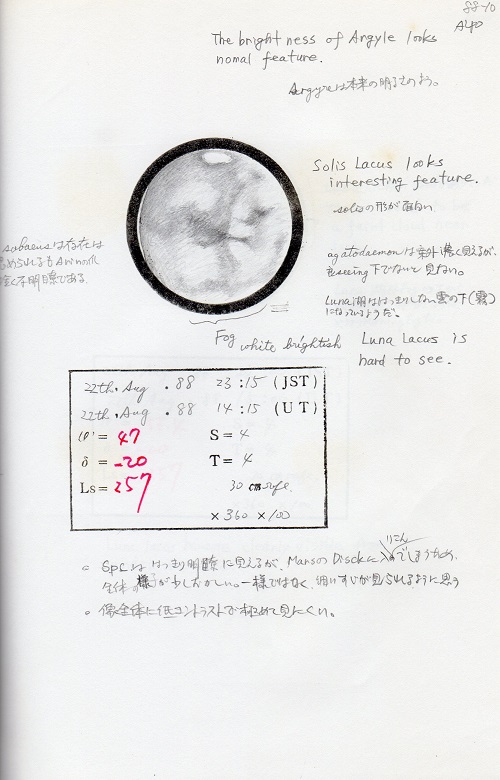 88-10
A40
The brightness of Argyle looks
nomal feature.
Argyreは本来の明るさのよう。
Solis Lacus looks
interesting feature.
solisの形が面白い
agatodaemonは案外濃く見えるが、
seeing下でないと見えない。
Luna湖ははっきりしない 雲の下(霧)
になっているようだ。
Luna Lacus is
hard to see.
は存在は
められるも
不明瞭である
Fog
white brightish
22th, Aug . 88 23 : 15 (JST)
22th, Aug . 88 14 : 15 (UT)
φ' = 47 S = 4
δ = -20 T = 4
Ls = 257 30 cm
× 360 × 100
りこん
○ Spcは はっきり明瞭に見えるが、MarsのDiskに でしまうため、
全体の様が少しおかしい。一様ではなく、細いすじが見られるように思う
○ 像全体に低コントラストで極めて見にくい。